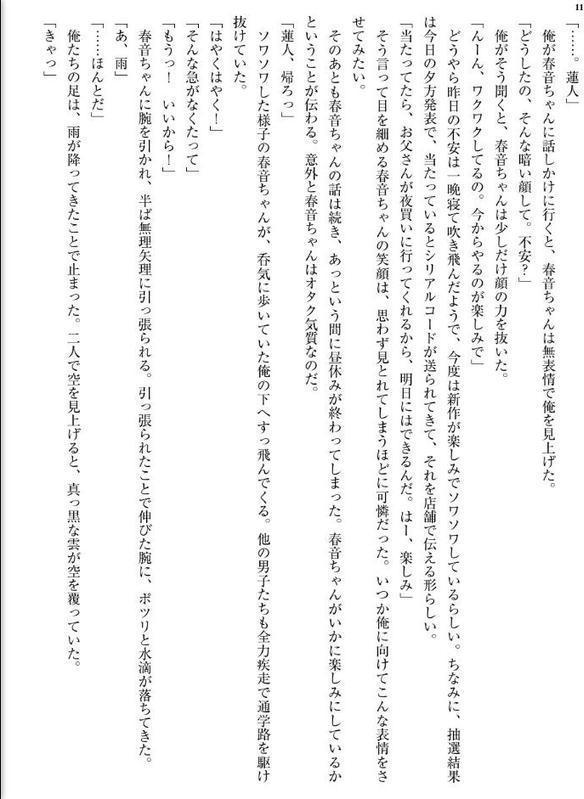 11
「……。蓮人」
　俺が春音ちゃんに話しかけに行くと、春音ちゃんは無表情で俺を見上げた。
「どうしたの、そんな暗い顔して。不安？」
　俺がそう聞くと、春音ちゃんは少しだけ顔の力を抜いた。
「んーん、ワクワクしてるの。今からやるのが楽しみで」
　どうやら昨日の不安は一晩寝て吹き飛んだようで、今度は新作が楽しみでソワソワしているらしい。ちなみに、抽選結果
は今日の夕方発表で、当たっているとシリアルコードが送られてきて、それを店舗で伝える形らしい。
「当たってたら、お父さんが夜買いに行ってくれるから、明日にはできるんだ。はー、楽しみ」
　そう言って目を細める春音ちゃんの笑顔は、思わず見とれてしまうほどに可憐だった。いつか俺に向けてこんな表情をさ
せてみたい。
　そのあとも春音ちゃんの話は続き、あっという間に昼休みが終わってしまった。春音ちゃんがいかに楽しみにしているか
ということが伝わる。意外と春音ちゃんはオタク気質なのだ。
「蓮人、帰ろっ」
　ソワソワした様子の春音ちゃんが、呑気に歩いていた俺の下へすっ飛んでくる。他の男子たちも全力疾走で通学路を駆け
抜けていた。
「はやくはやく！」
「そんな急がなくたって」
「もうっ！　いいから！」
　春音ちゃんに腕を引かれ、半ば無理矢理に引っ張られる。引っ張られたことで伸びた腕に、ポツリと水滴が落ちてきた。
「あ、雨」
「……ほんとだ」
　俺たちの足は、雨が降ってきたことで止まった。二人で空を見上げると、真っ黒な雲が空を覆っていた。
「きゃっ」